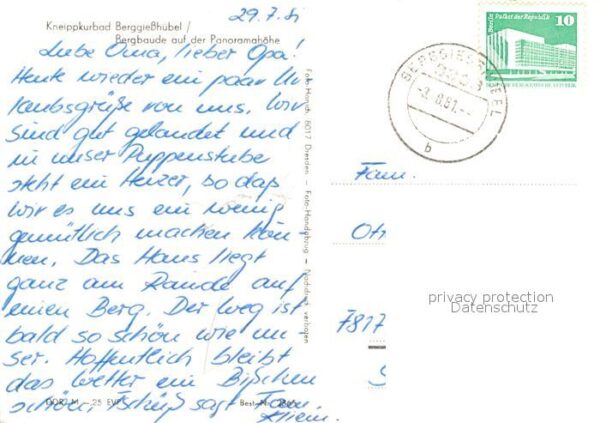 29.7.81
Kneippkurbad Berggießhübel /
Bergbaude auf der Panoramahöhe
Liebe Oma, lieber Opa!
Heute wieder ein paar Ur
laubsgrüße von uns. Wir
sind gut gelandet und
in unser Puppenstube
steht ein Heizer, so daß
wir es uns ein wenig
gemütlich machen kön
nen. Das Haus liegt
ganz am Rande auf
einen Berg. Der Weg ist
bald so schön wie un
ser. Hoffentlich bleibt
das Wetter ein Bißchen
schön, Tschüß sagt Fam.
Klein.
DDR: M -,25 EVP
Foto-Handabzug - Nachdruck verboten
8017 Dresden
Berlin, Palast der Republik
10
BERGGIESSHÜBEL
-3.8.81.--
b
Fam.
Ott
7817
S
privacy protection
Datenschutz